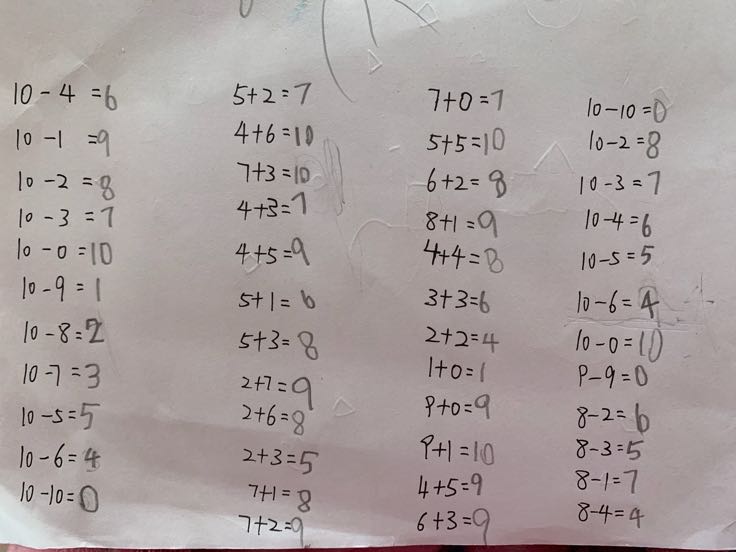 10-4=6
10-1=9
10-2=8
10-3=7
10-0=10
10-9=1
10-8=2
10-7=3
10-5=5
10-6=4
10-10=0
5+2=7
4+6=10
7+3=10
4+3=7
4+5=9
5+1=6
5+3=8
2+7=9
2+6=8
2+3=5
7+1=8
7+2=9
7+0=7
5+5=10
6+2=8
8+1=9
4+4=8
3+3=6
2+2=4
1+0=1
9+0=9
9+1=10
4+5=9
6+3=9
10-10=0
10-2=8
10-3=7
10-4=6
10-5=5
10-6=4
10-0=10
9-9=0
8-2=6
8-3=5
8-1=7
8-4=4